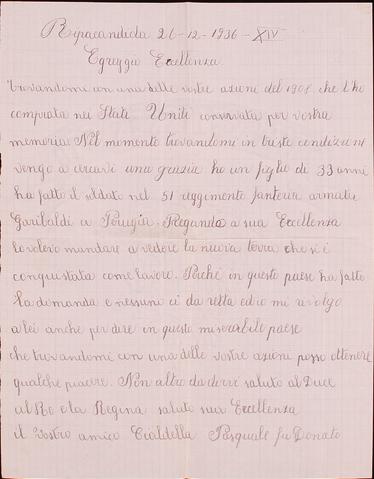 Ripacandida 26-12-1936-XIV
Egreggio Eccellenza
trovandomi con una delle vostre azioni del 1906 che l'ho
comprata nei Stati Uniti conservata per vostra
memoria Nel momento trovandomi in triste condizioni
vengo a cercarvi una grazia ho un figlio di 33 anni
ha fatto il soldato nel 51 reggimento fanteria armata
Garibaldi a Perugia. Pregando a sua Eccellenza
lo volevo mandare a vedere la nuova terra che si è
conquistata come lavoro. Perché in questo paese ha fatto
la domanda e nessuni ci da retta ed io mi rivolgo
a lei anche per dire in questo miserabile paese
che trovandomi con una delle vostre azioni posso ottenere
qualche piacere. Non altro da dirvi saluto al Duce
al Re e la Regina saluto sua Eccellenza
il vostro amico Cialdella Pasquale fu Donato